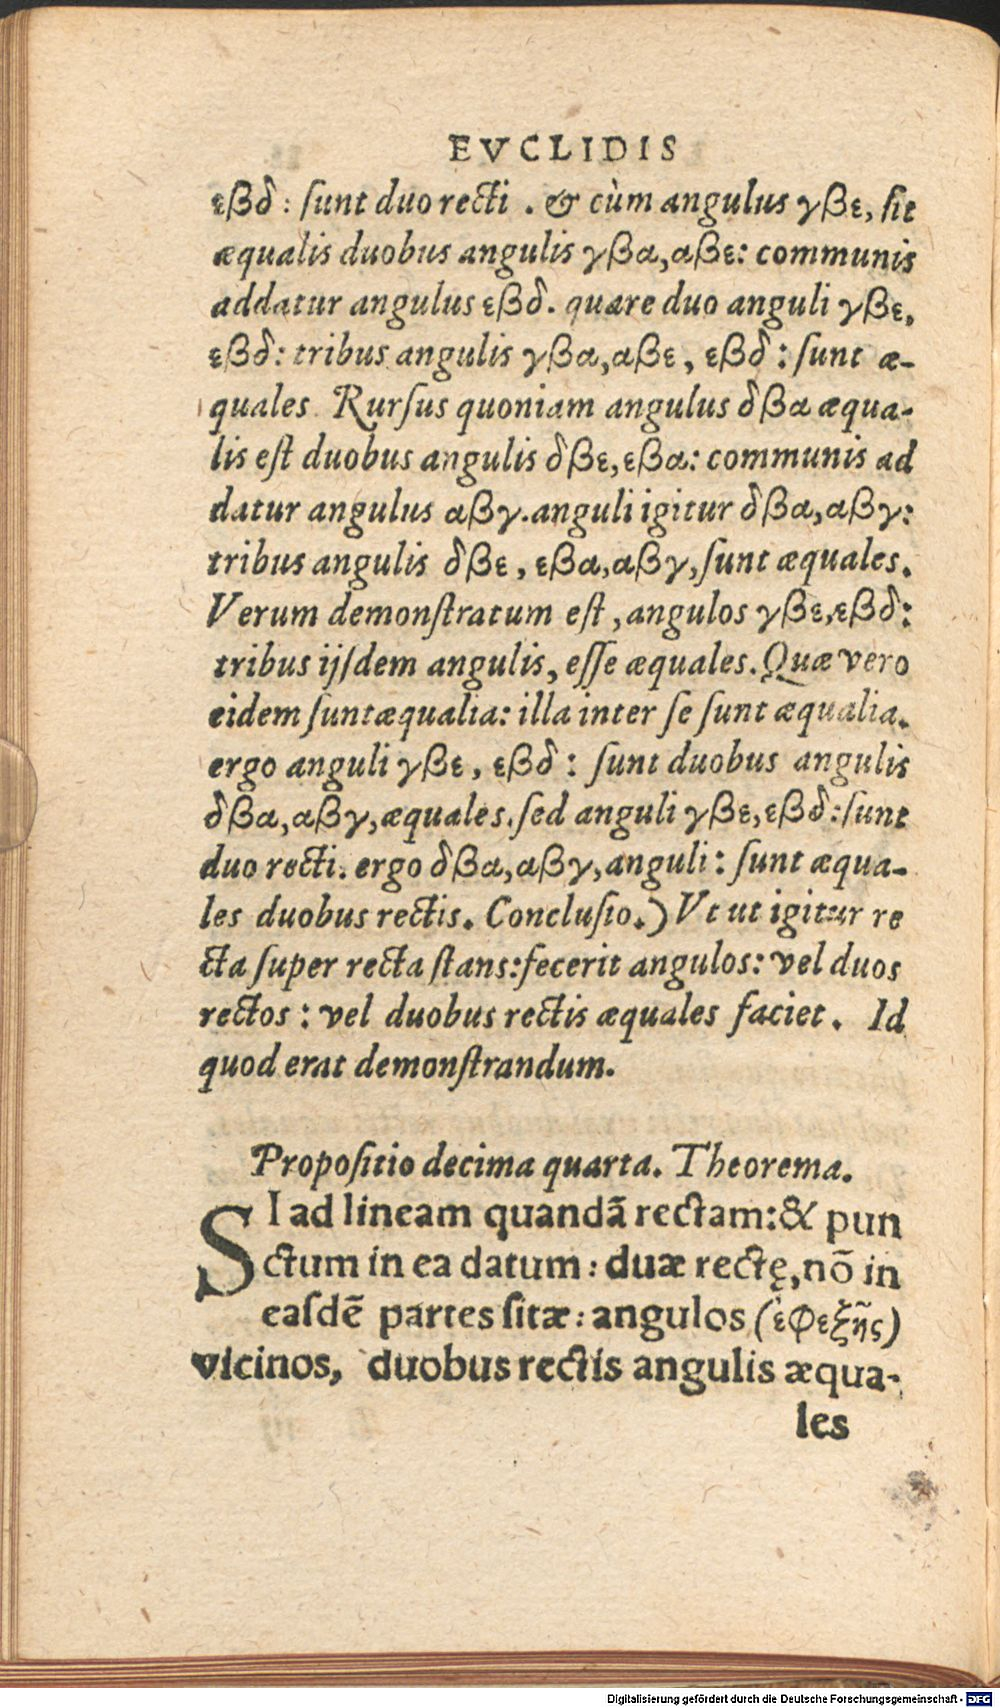 EVCLIDIS
εβδ : ſunt duo recti . & cùm angulus γβε, ſit
æqualis duobus angulis γβα,αβε: communis
addatur angulus εβδ. quare duo anguli γβε,
εβδ: tribus angulis γβα,αβε, εβδ : ſunt æ-
quales. Rurſus quoniam angulus δβα æqua-
lis eſt duobus angulis δβε,εβα: communis ad
datur angulus αβγ.anguli igitur δβα,αβγ:
tribus angulis δβε, εβα,αβγ,ſunt æquales.
Verum demonſtratum eſt, angulos γβε,εβδ:
tribus ijſdem angulis, eſſe æquales. Quæ vero
eidem ſunt æqualia: illa inter ſe ſunt æqualia.
ergo anguli γβε, εβδ : ſunt duobus angulis
δβα,αβγ,æquales. ſed anguli γβε,εβδ: ſunt
duo recti. ergo δβα,αβγ,anguli : ſunt æqua-
les duobus rectis. Concluſio.) Vt ut igitur re
cta ſuper recta ſtans: fecerit angulos: vel duos
rectos : vel duobus rectis æquales faciet. Id
quod erat demonſtrandum.
Propoſitio decima quarta. Theorema.
SI ad lineam quandã rectam: & pun
ctum in ea datum : duæ rectę, nõ in
eaſdẽ partes ſitæ : angulos (ἐφεξῆς)
vicinos, duobus rectis angulis æqua-
les
Digitalisierung gefördert durch die Deutsche Forschungsgemeinschaft - DFG